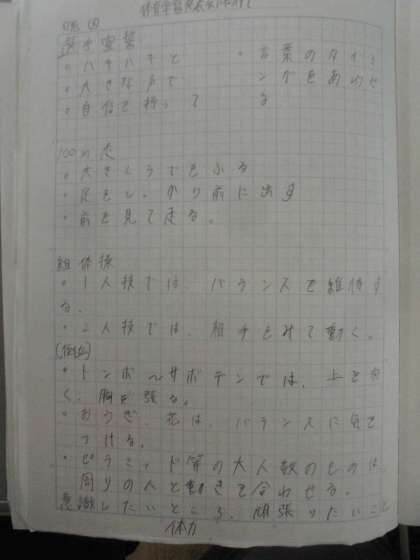 選手宣誓
・ハキハキと
・言葉のタイミ
・大きな声で
ングをあわせ
・自信を持って
る。
100m走
・大きくうでをふる
・足をしっかり前に出す
・前を見て走る。
組体操
・1人技では、バランスを維持す
る。
・2人技では、相手をみて動く。
・トンボ〜サボテンでは、上を向
く、胸を張る。
・おうぎ、花は、バランスに気を
つける。
・ピラミッド等の大人数のものは、
周りの人と動きを合わせる。
意識したいところ、頑張りたいこと
体力